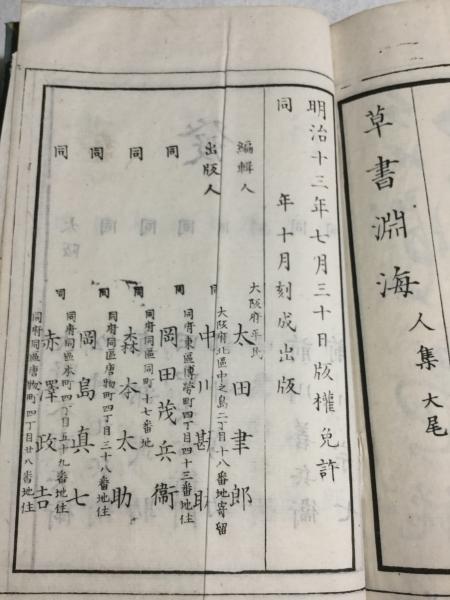 草書淵海 人集 大尾
明治十三年七月三十日版權免許
同 年十月刻成出版
編輯人 大阪府平民 太田聿郎
大阪府北區中之島二丁目十八番地寄留
出版人 同 中川勘助
同府東區博勞町四丁目四十三番地住
同 同 岡田茂兵衞
同府同區同町十七番地
同 同 森本太助
同府同區唐物町四丁目三十八番地住
同 同 岡島真七
同府同區本町四丁目五十九番地住
同 同 赤澤政吉
同府同區唐物町四丁目廿八番地住